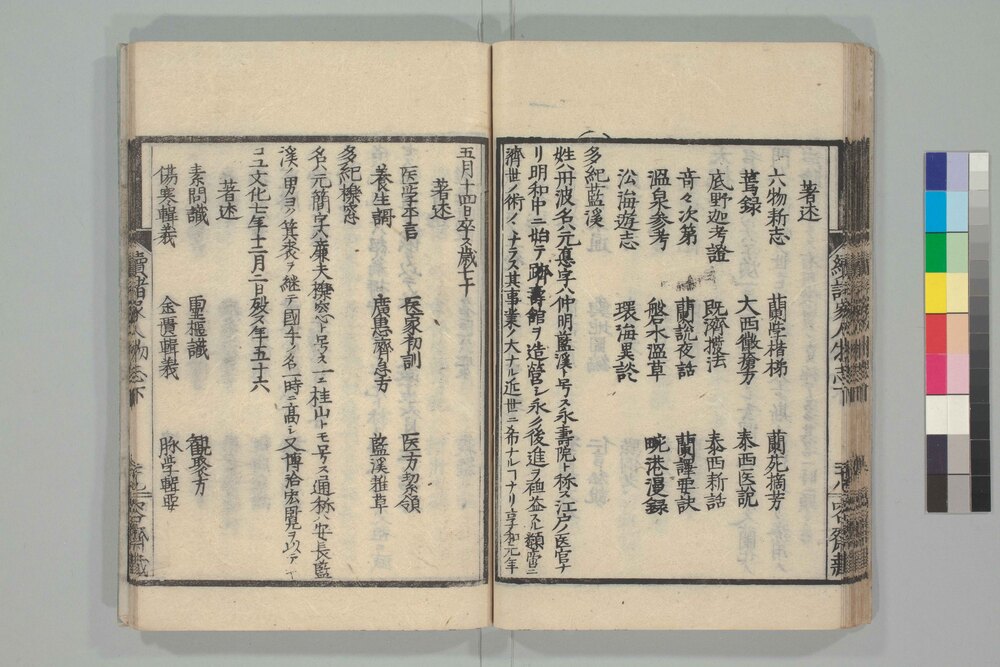 著述
六物新志 蘭学楷梯 蘭苑摘芳
蔫録 大西黴瘡方 泰西医説
底野迦考證 既済攬法 泰西新話
音々次第 蘭説夜話 蘭譯要訣
温泉参考 盤水温草 畹港漫録
沿海遊志 環海異談
多紀藍溪
姓ハ丹波名ハ元悳字ハ仲明藍溪ト号ス永壽院ト称ス江戸ノ医官ナ
リ明和中ニ始テ躋壽館ヲ造営シ永ク後進ヲ裨益スル頗當ニ
濟世ノ術ノミナラス其事業ノ大ナル近世ニ希ナルコナリ享和元年
五月十四日卒ス歳七十
著述
医学平言 医家初訓 医方絜領
養生調 廣惠濟急方 藍溪雑草
多紀櫟窓
名ハ元簡字ハ廉夫櫟窓ト号ス一ニ桂山トモ号ス通称ハ安長藍
溪ノ男ヨク箕裘ヲ継テ國手ノ名一時ニ高シ又博洽宏覧ヲ以テ
コユ文化七年十二月二日歿ス年五十六
著述
素問識 霊樞識 観聚方
傷寒輯義 金匱輯義 脉学輯要
續諸家人物志下